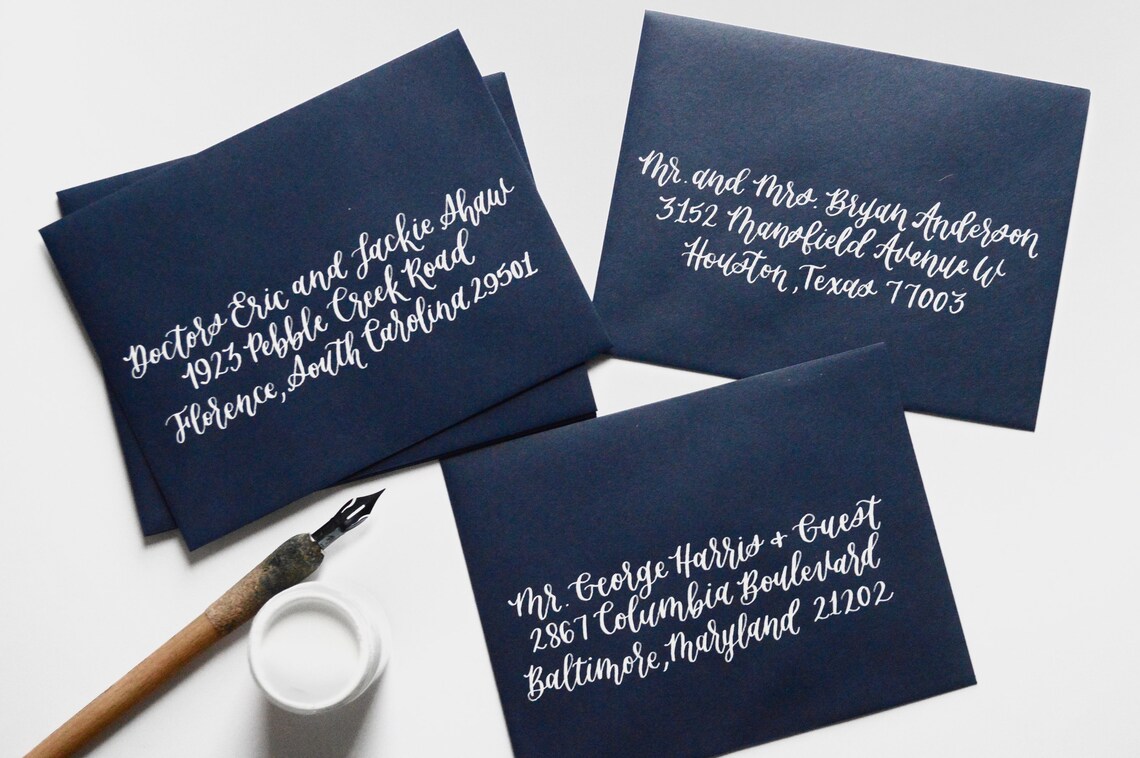 Doctors Eric and Jackie Shaw
1923 Pebble Creek Road
Florence, South Carolina 29501
Mr. and Mrs. Bryan Anderson
3152 Mansfield Avenue W
Houston, Texas 77003
Mr. George Harris + Guest
2867 Columbia Boulevard
Baltimore, Maryland 21202